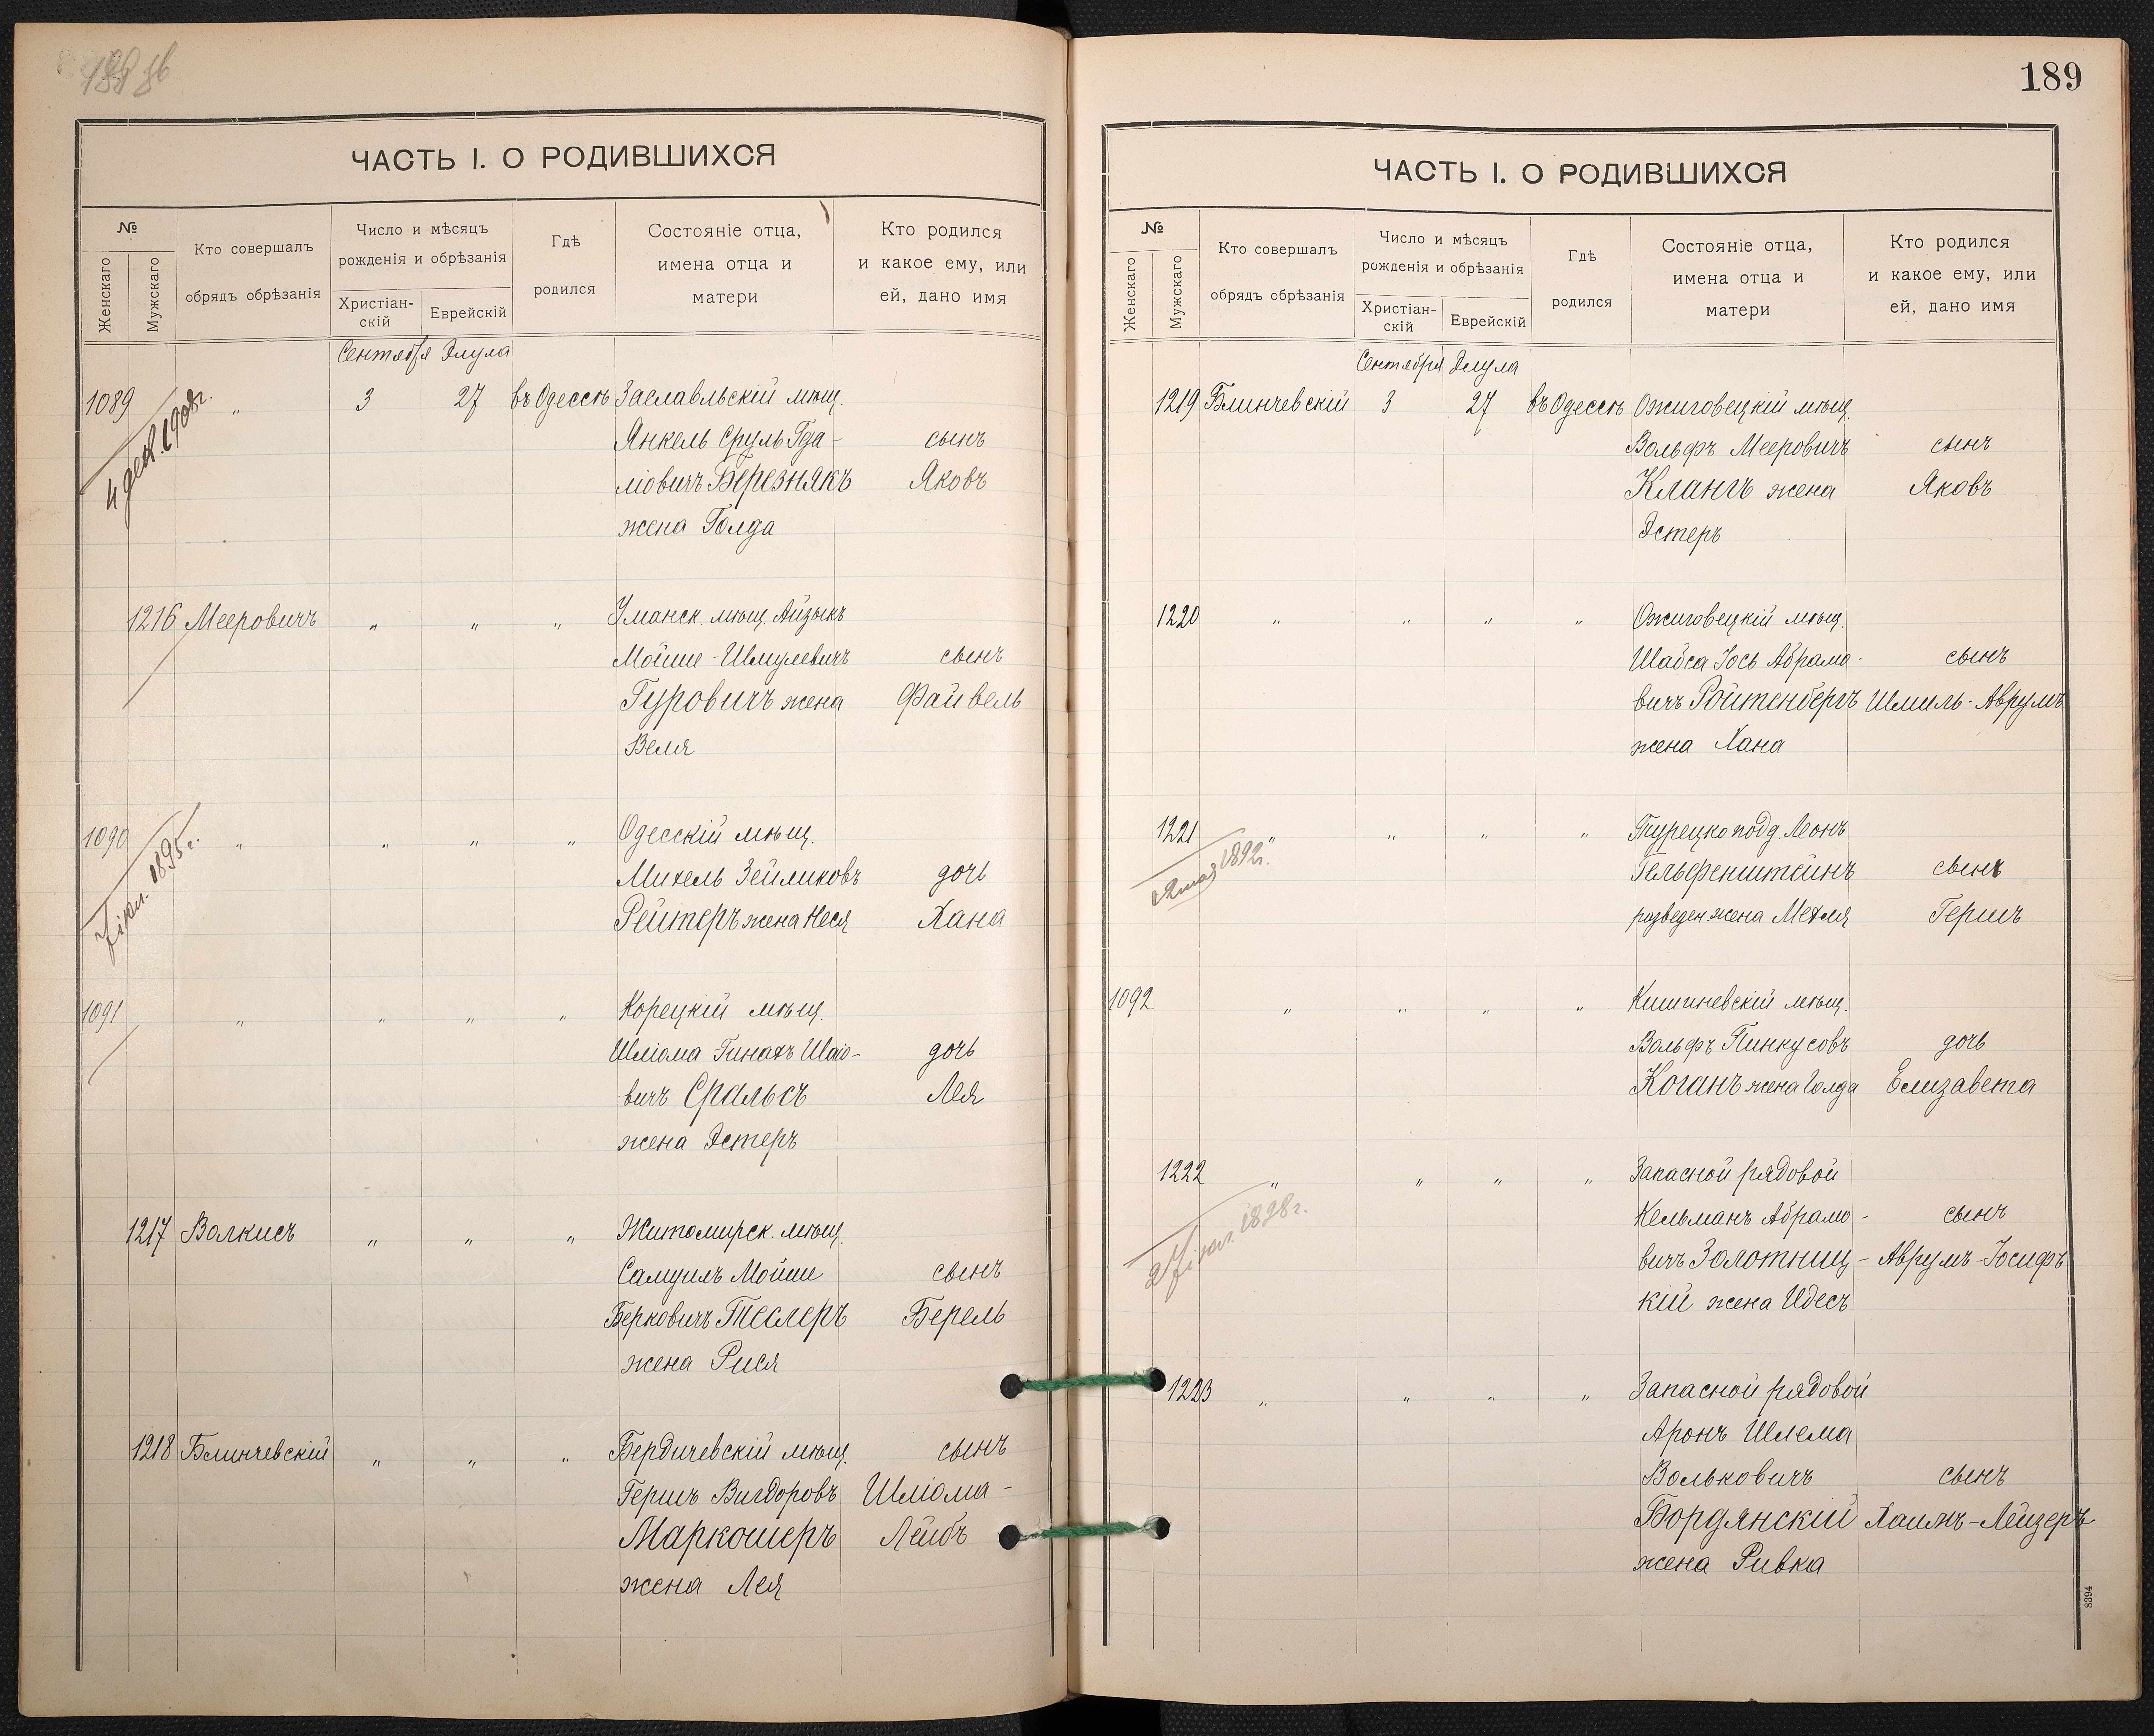 ЧАСТЬ I. О РОДИВШИХСЯ
№
Женскаго
Мужскаго
Кто совершалъ
обрядъ обрѣзанія
Число и мѣсяцъ
рожденія и обрѣзанія
Христіан-
скій
Еврейскій
Гдѣ
родился
Состояніе отца,
имена отца и
матери
Кто родился
и какое ему, или
ей, дано имя
Сентября Элула
1089 " 3 27 въ Одессѣ Заславльскій мѣщ.
4 дек. 1908г.
Янкель Сруль Гда- сынъ
ліовичъ Березнякъ Яковъ
жена Голда
1216 Мееровичъ " " " Уманск. мѣщ. Айзыкъ
Мойше-Шмулевичъ сынъ
Гуровичъ жена Файвель
Веля
1090 " " " " Одесскій мѣщ.
1895г.
Михель Зейликовъ дочь
Рейтеръ жена Неся Хана
1091 " " " " Корецкій мѣщ.
Шліома Гинахъ Шаіо- дочь
вичъ Сральсъ Лея
жена Эстеръ
1217 Волкисъ " " " Житомирск. мѣщ.
Самуилъ Мойше сынъ
Берковичъ Теслеръ Берель
жена Рися
1218 Блинчевскій " " " Бердичевскій мѣщ. сынъ
Гершъ Вигдоровъ Шліома-
Маркошеръ Лейбъ
жена Лея
189
ЧАСТЬ I. О РОДИВШИХСЯ
№
Женскаго
Мужскаго
Кто совершалъ
обрядъ обрѣзанія
Число и мѣсяцъ
рожденія и обрѣзанія
Христіан-
скій
Еврейскій
Гдѣ
родился
Состояніе отца,
имена отца и
матери
Кто родился
и какое ему, или
ей, дано имя
Сентября Элула
1219 Блинчевскій 3 27 въ Одессѣ Ожиговецкій мѣщ.
Вольфъ Мееровичъ сынъ
Клангъ жена Яковъ
Эстеръ
1220 " " " " Ожиговецкій мѣщ.
Шабса Іось Абрамо- сынъ
вичъ Ройтенбергъ Шмиль-Аврумъ
жена Хана
1221 " " " " Турецкоподд. Леонъ
мая 1892г.
Гельфенштейнъ сынъ
разведен жена Мехля Гершъ
1092 " " " " Кишиневскій мѣщ.
Вольфъ Пинкусовъ дочь
Коганъ жена Голда Елизавета
1222 " " " " Запасной рядовой
1898г.
Кельманъ Абрамо- сынъ
вичъ Золотниц- Аврумъ-Іосифъ
кій жена Идесъ
1223 " " " " Запасной рядовой
Аронъ Шлема
Вольковичъ сынъ
Бордянскій Хаимъ-Лейзеръ
жена Ривка
8394